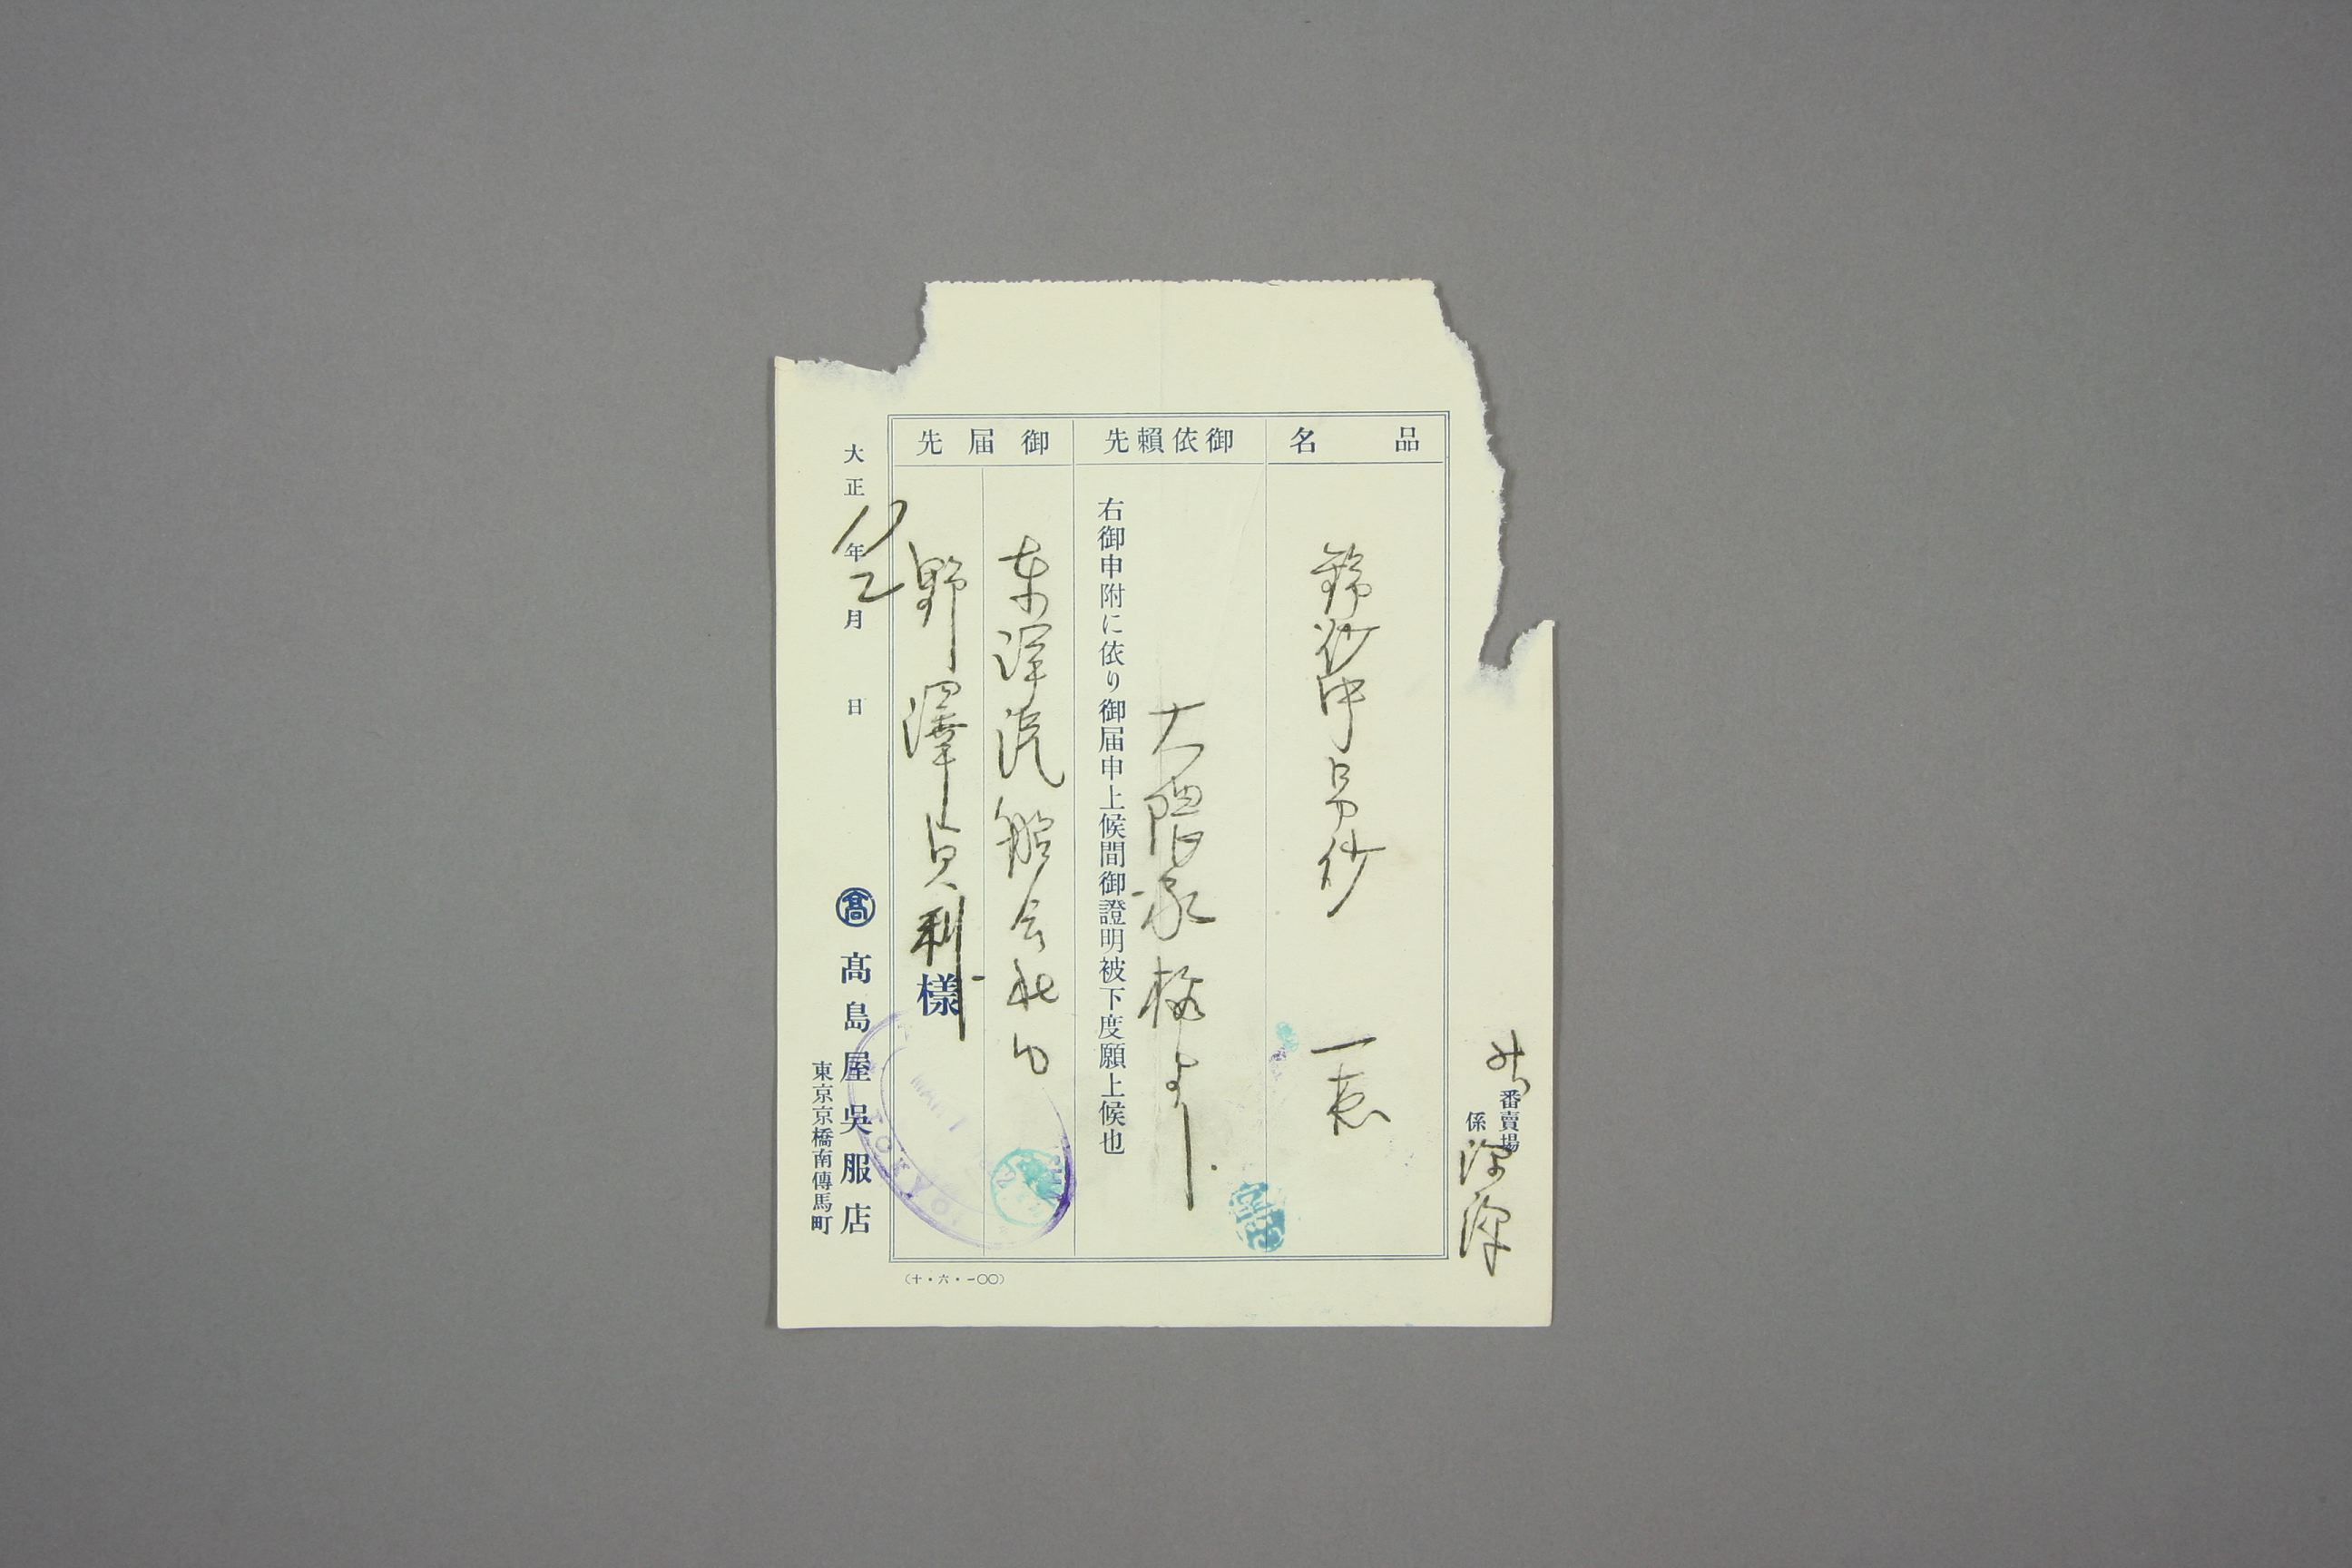 番賣場
係
品名
一
御依賴先
大隈家様より
右御申附に依り御届申上候間御證明被下度願上候也
御届先
東洋汽船会社内
野澤貞利様
大正11年2月 日
髙 髙島屋吳服店
東京京橋南傳馬町
(十・六・一〇〇)
TOKYO